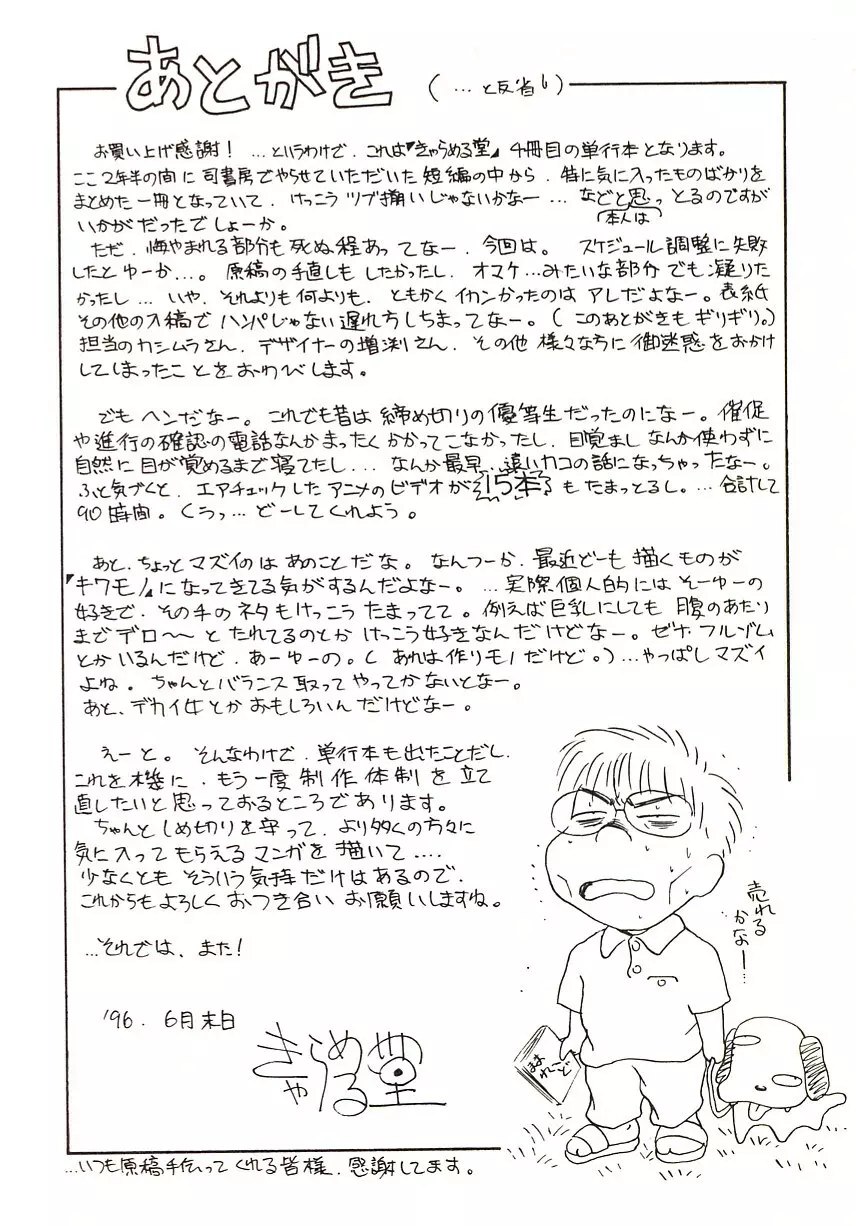 あとがき
(…と反省も)
お買い上げ感謝！…というわけで、これは『きゃらめる堂』4冊目の単行本となります。
ここ2年半の間に司書房でやらせていただいた短編の中から、特に気に入ったものばかりを
まとめた一冊となっていて、けっこうツブ揃いじゃないかなー…などと思っとるのですが
(本人は)
いかがだったでしょーか。
ただ、悔やまれる部分も死ぬ程あってなー、今回は。スケジュール調整に失敗
したとゆーか…。原稿の手直しもしたかったし、オマケ…みたいな部分でも凝りた
かったし…いや、それよりも何よりも、ともかくイカンかったのはアレだよなー。表紙
その他の入稿でハンパじゃない遅れ方しちまってなー。(このあとがきもギリギリ。)
担当のカシムラさん、デザイナーの増渕さん、その他様々な方に御迷惑をおかけ
してしまったことをおわびします。
でもヘンだなー。これでも昔は締め切りの優等生だったのになー。催促
や進行の確認の電話なんかまったくかかってこなかったし、目覚ましなんか使わずに
自然に目が覚めるまで寝てたし…なんか最早、遠いカコの話になっちゃったなー。
ふと気づくと、エアチェックしたアニメのビデオが15本もたまっとるし。…合計して
90時間。くうっ…どーしてくれよう。
あと、ちょっとマズイのはあのことだな。なんつーか、最近どーも描くものが
『キワモノ』になってきてる気がするんだよなー。…実際個人的にはそーゆーの
好きで、その手のネタもけっこうたまってて。例えば巨乳にしても腹のあたり
までデロ〜〜とたれてるのとかけっこう好きなんだけどなー。ゼナ・フルゾム
とかいるんだけど、あーゆーの。(あれは作りモノだけど。)…やっぱしマズイ
よね。ちゃんとバランス取ってやってかないとなー。
あと、デカイ女とかおもしろいんだけどなー。
えーと。そんなわけで、単行本も出たことだし、
これを機に、もう一度制作体制を立て
直したいと思っておるところであります。
ちゃんとしめ切りを守って、より多くの方々に
気に入ってもらえるマンガを描いて‥‥
少なくともそういう気持だけはあるので、
これからもよろしくおつき合いお願いしますね。
…それでは、また！
売れる
かなー…
'96. 6月末日
きゃらめる堂
ほれこど
…いつも原稿手伝ってくれる皆様、感謝してます。